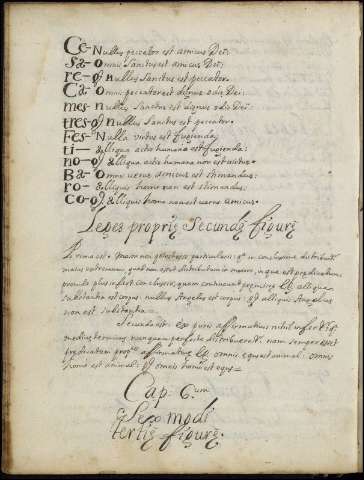 Ce- Nullus peccator est amicus Dei:
Sa- Omnis Sanctus est amicus Dei:
re- g̃ nullus Sanctus est peccator.
Ca- Omnis peccator est dignus odio Dei:
mes- nullus Sanctus est dignus odio Dei:
tres- g̃ nullus Sanctus est peccator.
Fes- Nulla virtus est fugienda:
ti- aliqua actio humana est fugienda:
no- g̃ aliqua actio humana non est virtus.
Ba- Omnis verus amicus est
ro- aliquis homo non est
co- g̃ aliquis homo non est verus amicus.
Leges proprię Secundę figurę
Prima est: Maior non particularis: in conclusione distribuitur
maius extremum, quod non est distributum in maiori, in qua est prædicatum,
proinde plus infert conclusio, quam continebant premissę aliqua
substantia est corpus: nullus Angelus est corpus: g̃ aliquis Angelus
non est substantia.
Secunda est: Ex puris affirmativis nihil infert
medius terminus nunquam perfecte distribueretur, nam semper esset
prædicatum affirmativę omnis equus est animal: omnis
homo est animal: g̃ omnis homo est equus.
Cap: 6.um
modi
tertię figurę.